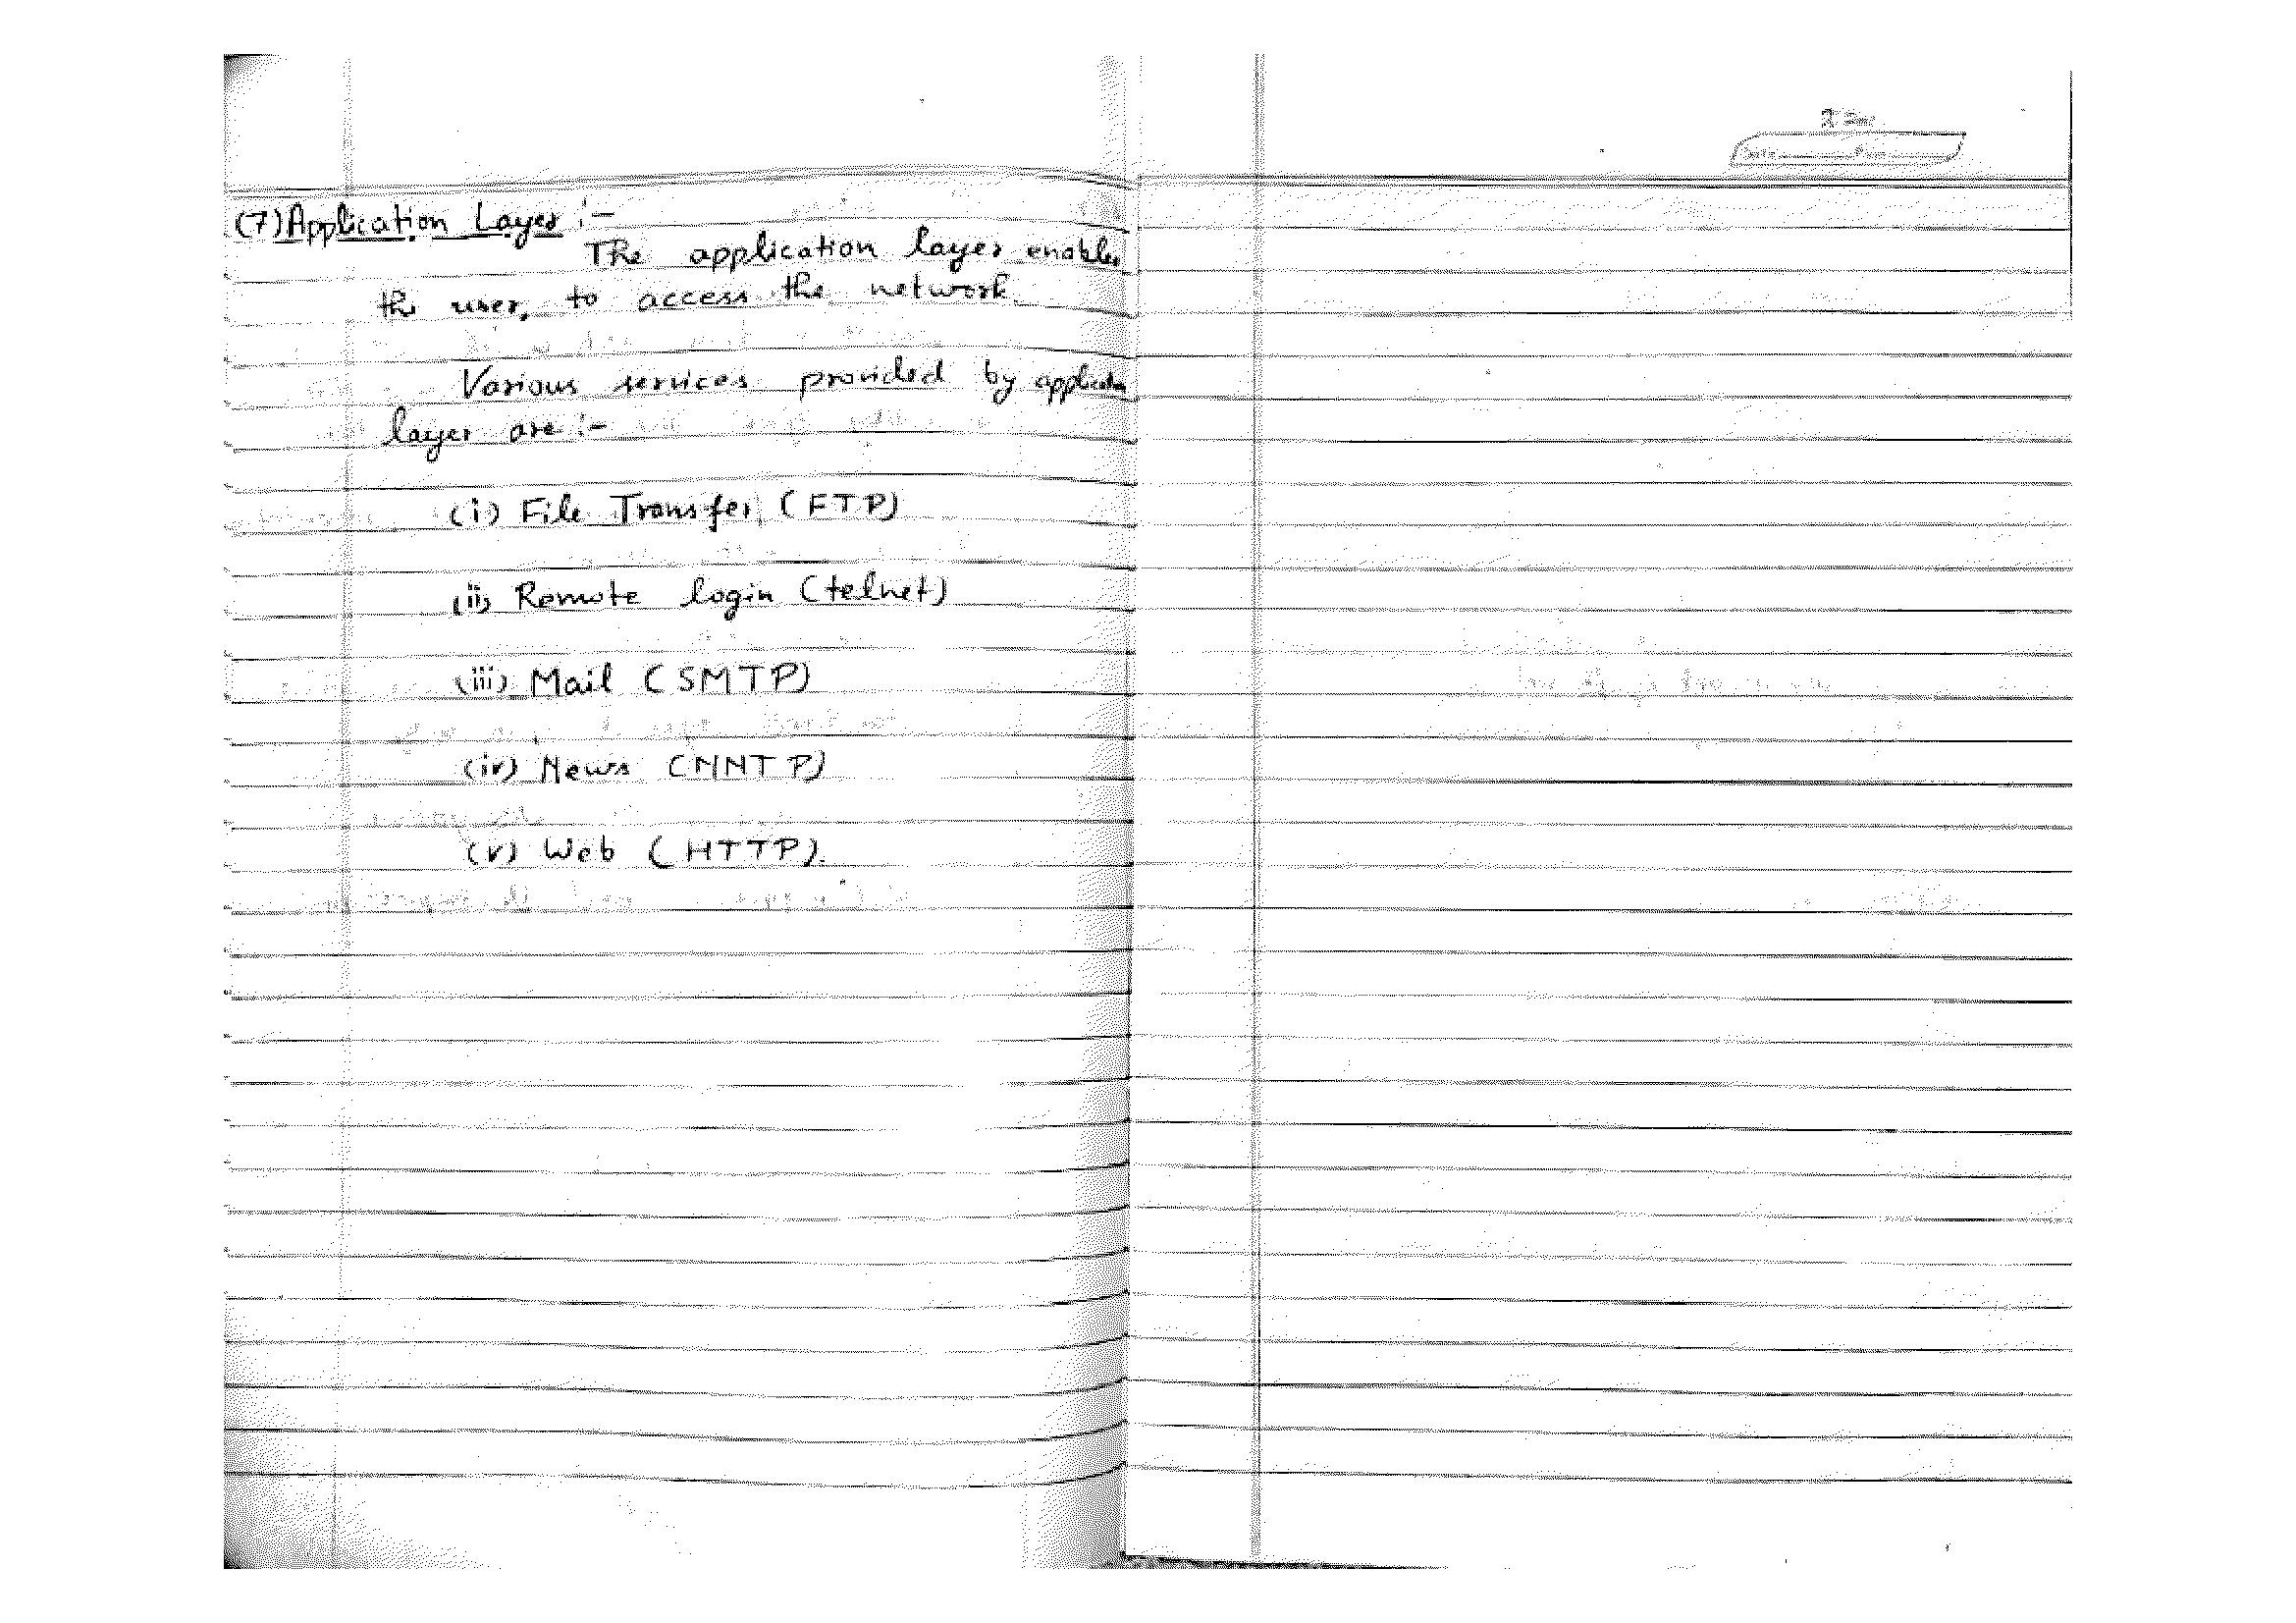 (7) Application Layer :-
The application layer enables
the user, to access the network.
Various services provided by
layer are :-
(i) File Transfer (FTP)
(ii) Remote login (telnet)
(iii) Mail (SMTP)
(iv) News (NNTP)
(v) Web (HTTP).